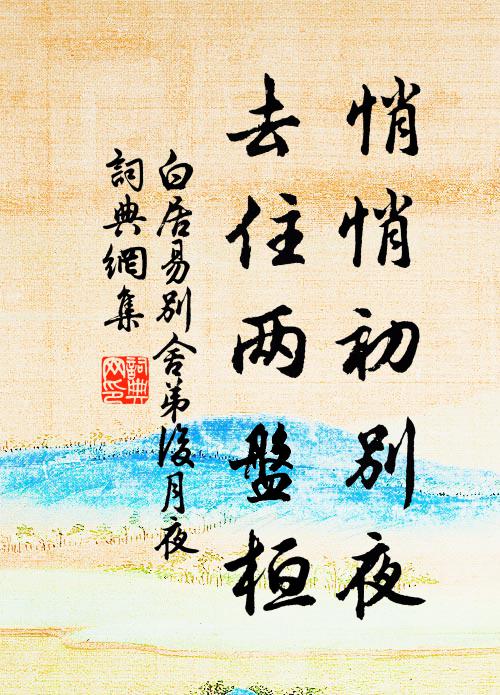 悄悄初別夜
去住两盤桓
白居易別舍弟後月夜
詞典網集
詞典
网印